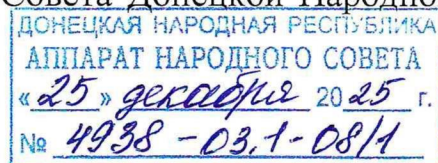 Совета Донецкой Народно
ДОНЕЦКАЯ НАРОДНАЯ РЕСПУБЛИКА
АППАРАТ НАРОДНОГО СОВЕТА
«25» декабря 2025 г.
№ 4938-03.1-08/1